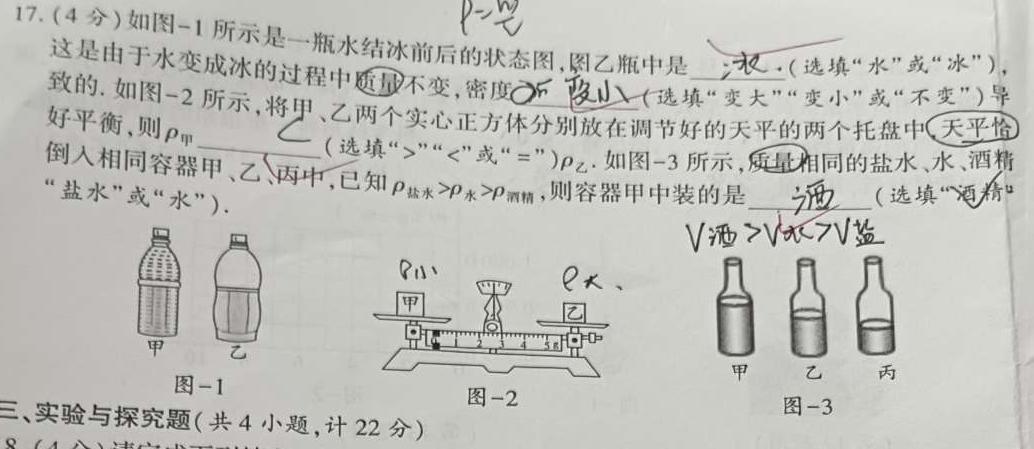 ρ=m/v
17.(4分)如图-1所示是一瓶水结冰前后的状态图,图乙瓶中是 冰.(选填“水”或“冰”),
这是由于水变成冰的过程中质量不变,密度 变小(选填“变大”“变小”或“不变”)导
致的.如图-2所示,将甲、乙两个实心正方体分别放在调节好的天平的两个托盘中,天平恰
好平衡,则ρ甲 <(选填“>”“<”或“=”)ρ乙.如图-3所示,质量相同的盐水、水、酒精
倒入相同容器甲、乙、丙中,已知ρ盐水>ρ水>ρ酒精,则容器甲中装的是 酒(选填“酒精”
“盐水”或“水”).
V酒>V水>V盐
ρ小 ρ大、
甲 乙
0 1 2 3 4 5g
甲 乙 甲 乙 丙
图-1 图-2 图-3
三、实验与探究题(共4小题,计22分)